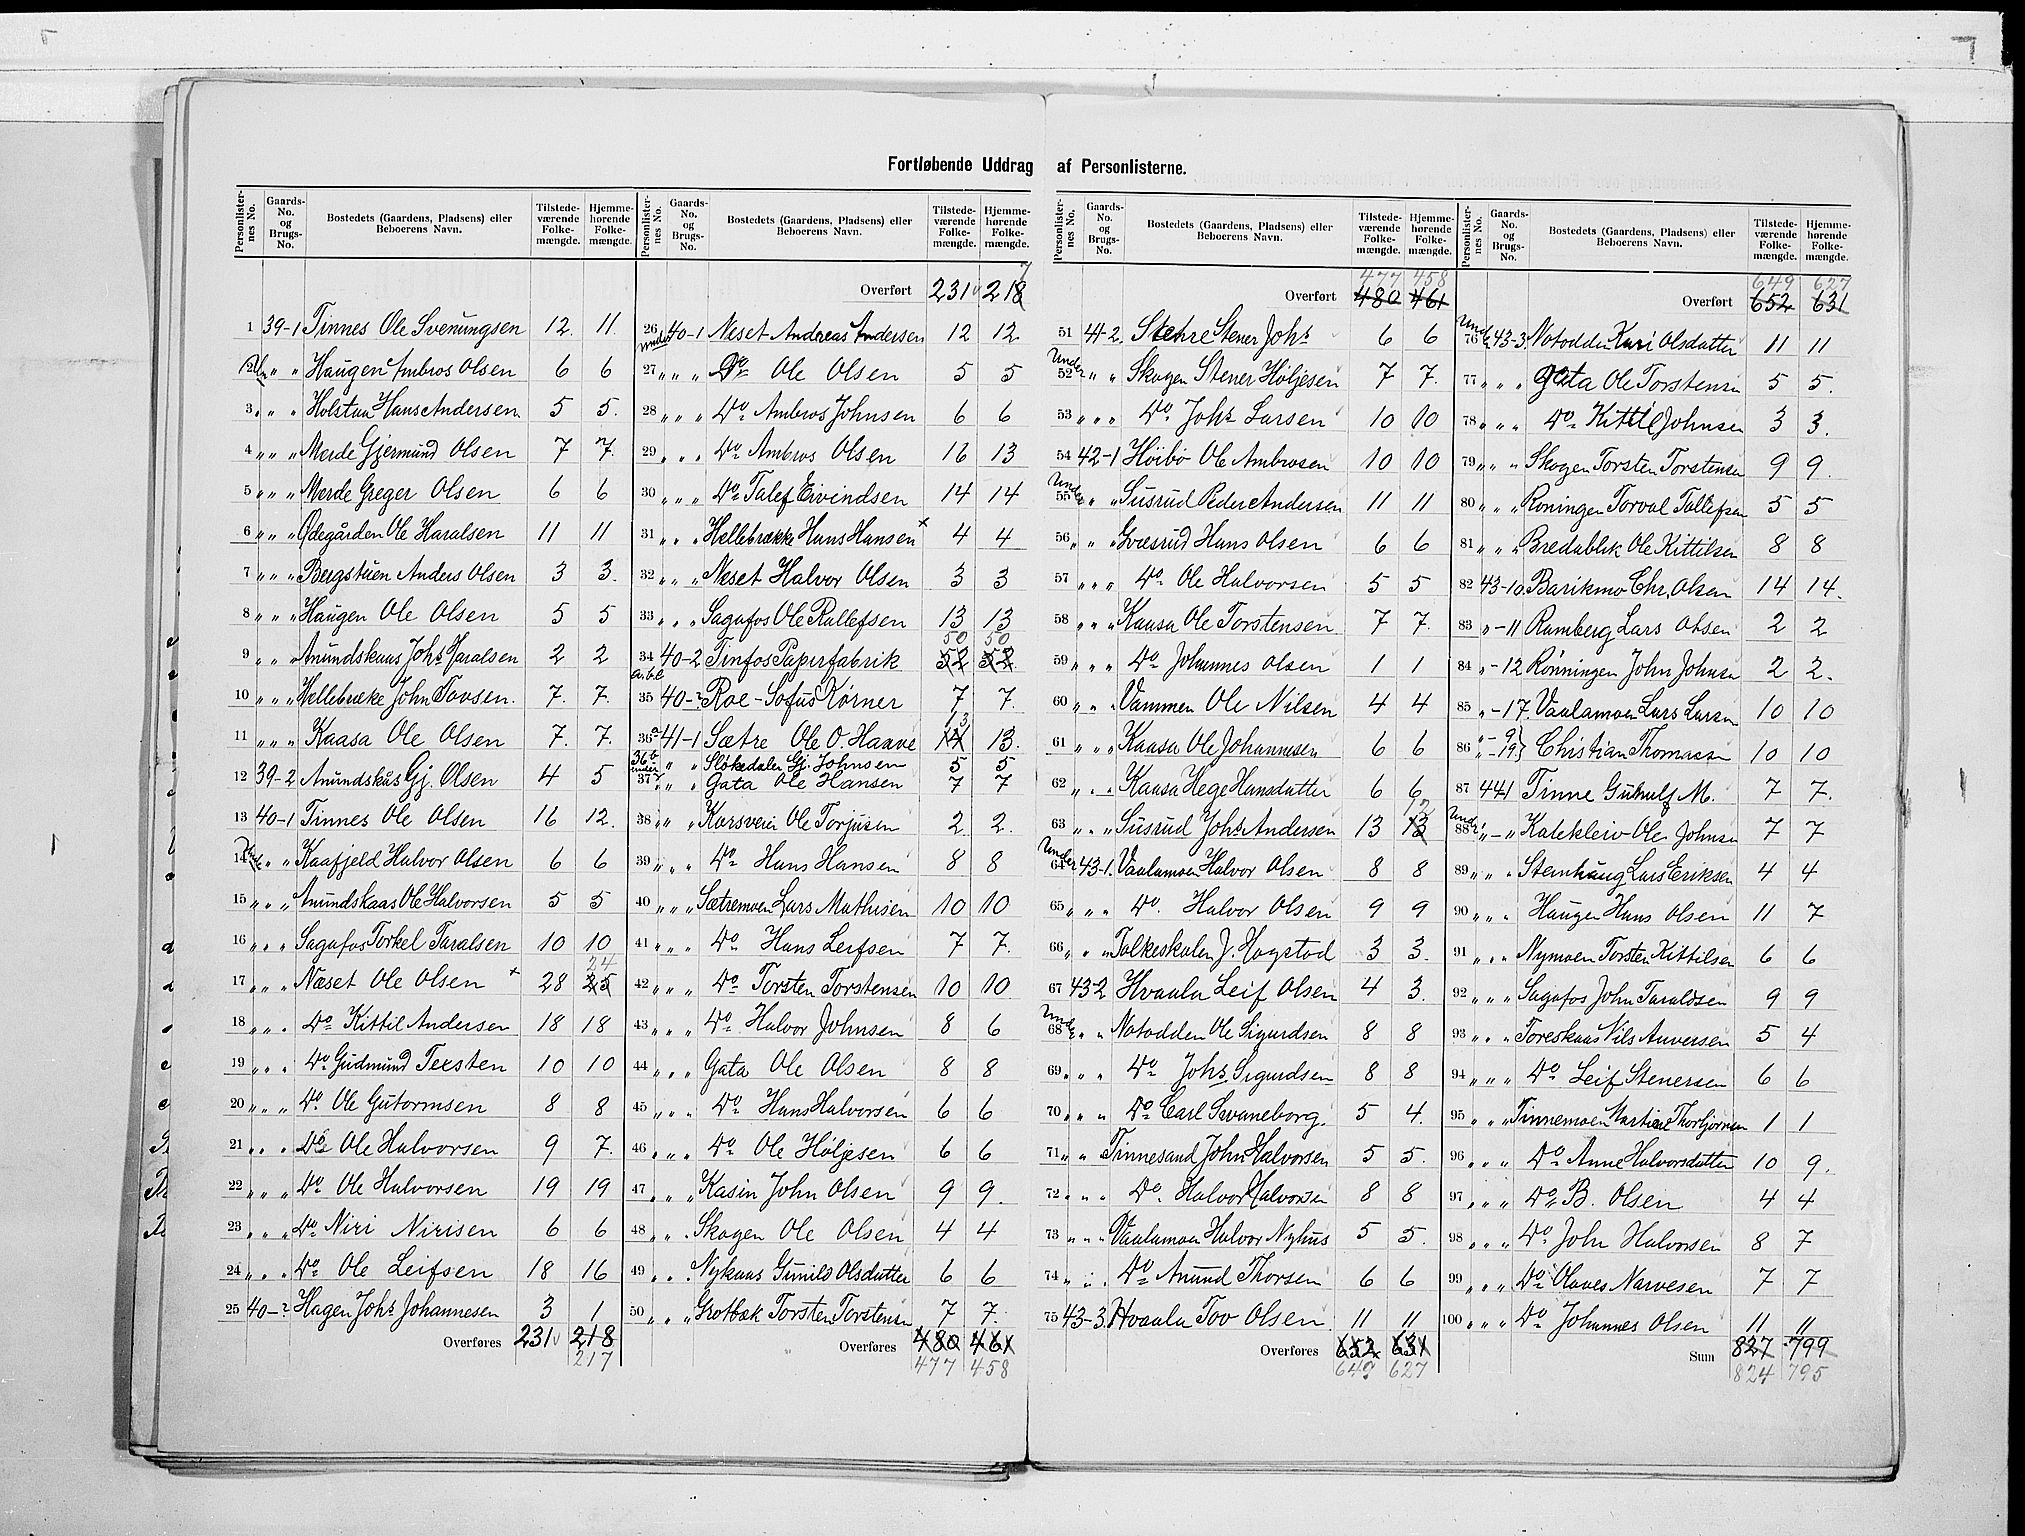 Fortløbende Uddrag af Personlisterne.
Personlisternes No. Gaards-No. og Brugs-No. Bostedets (Gaardens, Pladsens) eller Beboerens Navn. Tilstedeværende Folkemængde. Hjemmehørende Folkemængde.
1 39-1 Tinnes Ole Svenungsen 12. 11.
2 " " Haugen Ambros Olsen 6 6
3 " " Holstan Hans Andersen 5 5.
4 " " " Merde Gjermund Olsen 7 7.
5 " " " Merde Greger Olsen 6 6
6 " " " Ødegården Ole Haralsen 11 11
7 " " " Bergstuen Anders Olsen 3 3.
8 " " " Haugen Ole Olsen 5 5
9 " " " Anundskaas Johs Taralsen 2 2
10 " " " Hellebræke John Tovsen. 7. 7.
11 " " " Kaasa Ole Olsen 7. 7.
12 39-2 Anundskås Gj. Olsen 4 5
13 40-1 Tinnes Ole Olsen 16 12.
14 Under " " Kaafjeld Halvor Olsen 6 6
15 " " " Anundskaas Ole Halvorsen 5 5
16 " " " Sagafos Torkel Taralsen 10 10
17 " " " Næset Ole Olsen + 28 25 24
18 " " " Do Kittil Andersen 18 18
19 " " " Do Gudmund Teksten 10 10
20 " " " Do Ole Gutormsen 8 8
21 " " " Do Ole Halvorsen 9 7.
22 " " " Do Ole Halvorsen 19 19
23 " " " Do Niri Nirisen 6 6
24 " " " Do Ole Leifsen 18 16
25 40-2 Hagen Johs Johannesen 3 1
Overføres 231 218
217
Personlisternes No. Gaards-No. og Brugs-No. Bostedets (Gaardens, Pladsens) eller Beboerens Navn. Tilstedeværende Folkemængde. Hjemmehørende Folkemængde.
Overført 231 218 7
26 under 40-1 Næset Andreas Andersen 12 12.
27 " " " Do Ole Olsen 5 5
28 " " " Do Ambros Johnsen 6 6
29 " " " Do Ambros Olsen 16 13
30 " " " Do Talef Eivindsen 14 14
31 " " " Hellebrække Hans Hansen + 4 4
32 " " " Næset Halvor Olsen 3 3
33 " " " Sagafos Ole Rollefsen 13 13
34 a.b.c 40-2 Tinfos Papirfabrik 52 52 50 50
35 40-2 Roe - Sofus Kørner 7 7.
36a 41-1 Sætre Ole O. Haave 14 13 13.
36b under " " Sløkedalen Gj. Johnsen 5 5
37 " " " Gata Ole Hansen 7 7
38 " " " Korsveien Ole Torjusen 2. 2.
39 " " " Do Hans Hansen 8 8
40 " " " Sætremoen Lars Mathisen 10 10
41 " " " Do Hans Leifsen 7 7.
42 " " " Do Torsten Torstensen 10 10.
43 " " " Do Halvor Johnsen 8 6
44 " " " Gata Ole Olsen 8 8
45 " " " Do Hans Halvorsen 6 6
46 " " " Do Ole Høljesen 6 6
47 " " " Kasin John Olsen 9 9.
48 " " " Skogen Ole Olsen 4 4
49 " " " Nykaas Gunild Olsdatter 6 6
50 " " " Grotbæk Torsten Torstensen 7 7.
Overføres 480 461
477 458
Personlisternes No. Gaards-No. og Brugs-No. Bostedets (Gaardens, Pladsens) eller Beboerens Navn. Tilstedeværende Folkemængde. Hjemmehørende Folkemængde.
477 458
Overført 480 461
51 41-2. Stehre Stener Johs 6 6
52 Under " " Skogen Stener Høljesen 7 7.
53 " " " Do Johs Larsen 10 10
54 42-1 Høibø Ole Ambrosen 10 10
55 Under " " Susrud Peder Andersen 11 11
56 " " " Gvæsrud Hans Olsen 6 6
57 " " " Do Ole Halvorsen 5 5
58 " " " Kaasa Ole Torstensen 7 7.
59 " " " Do Johannes Olsen 1 1
60 " " " Vammen Ole Nilsen 4 4
61 " " " Kaasa Ole Johannesen 6 6
62 " " " Kaasa Hege Hansdatter 6 6
63 " " " Susrud Johs Andersen 13 13 12
64 Under 43-1. Vaalamoen Halvor Olsen 8 8
65 " " " Do. Halvor Olsen 9 9
66 " " " Folkeskolen J. Hogstad 3 3.
67 43-2 Hvaala Leif Olsen 4 3.
68 Under " " Notodden Ole Sigurdsen 8 8
69 " " " Do Johs Sigurdsen 8 8
70 " " " Do Carl Svaneborg. 5 4.
71 " " Tinnesand John Halvorsen 5 5.
72 " " " Do. Halvor Halvorsen 8 8
73 " " " Vaalamoen Halvor Nyhus 5 5.
74 " " " Do Anund Thorsen 6 6
75 43-3. Hvaala Tov Olsen 11 11
Overføres 652 631
649 627
Personlisternes No. Gaards-No. og Brugs-No. Bostedets (Gaardens, Pladsens) eller Beboerens Navn. Tilstedeværende Folkemængde. Hjemmehørende Folkemængde.
649 627
Overført 652 631
76 Under 43-3. Notodden Kari Olsdatter 11 11
77 " " " Gata Ole Torstensen 5 5.
78 " " " Do Kittil Johnsen 3 3.
79 " " " Skogen Torsten Torstensen 9 9.
80 " " " Roningen Torval Tollefsen 5 5
81 " " " Bredablik Ole Kittilsen 8 8
82 43-10. Barikmo Chr. Olsen 14 14.
83 " -11 Ramberg Lars Olsen 2 2
84 " -12 Rønningen John Johnsen 2 2.
85 " -17. Vaalamoen Lars Larsen 10 10
86 " -9 " -19 } Christian Thomassen 10 10
87 44-1 Tinne Gunulf M. 7 7.
88 Under " - " Kalekleiv Ole Johnsen 7 7
89 " " " Stenhaug Lars Eriksen 4 4
90 " " " Haugen Hans Olsen 11 7
91 " " " Nymoen Torsten Kittilsen 6 6
92 " " " Sagafos John Taraldsen 9 9
93 " " " Toreskaas Nils Anversen 5 4
94 " " " Do Leif Stenersen 6 6
95 " " " Tinnemoen Martine Thorbjørnsen 1 1
96 " " " Do Anne Halvorsdatter 10 9.
97 " " " Do B. Olsen 4 4
98 " " " Do John Halvorsen 8 7
99 " " " Do Olaves Narvesen 7 7
100 " " " Do Johannes Olsen 11 11
Sum 827 799
824 795